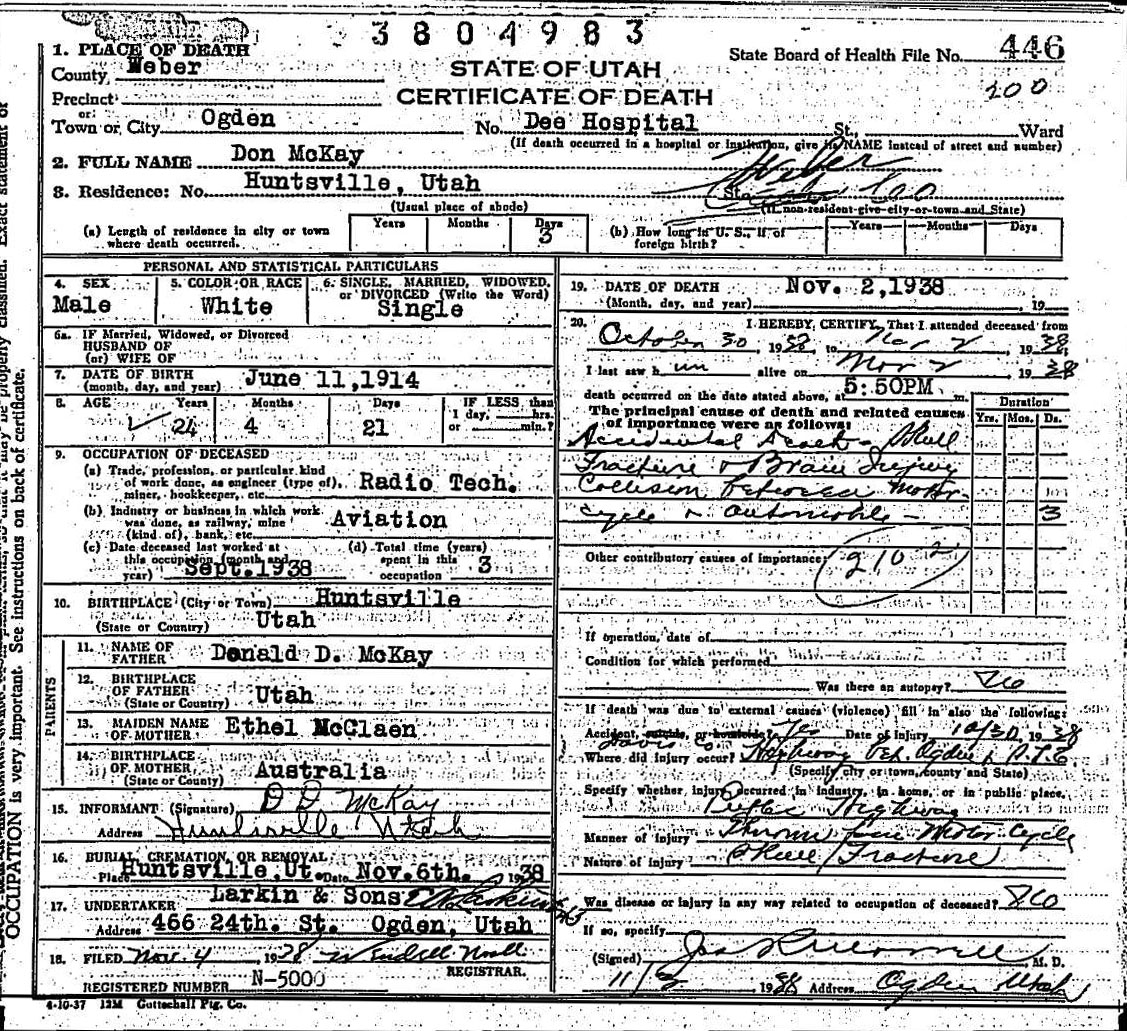 3804983
1. PLACE OF DEATH
County, Weber
STATE OF UTAH
State Board of Health File No. 446
Precinct
CERTIFICATE OF DEATH
200
or
Town or City Ogden No. Dee Hospital St., Ward
(If death occurred in a hospital or institution, give its NAME instead of street and number)
2. FULL NAME Don McKay
3. Residence: No. Huntsville, Utah St.
(Usual place of abode) (If non-resident give city or town and State)
(a) Length of residence in city or town where death occurred. Years Months Days 3
(b) How long in U. S., if of foreign birth? Years Months Days
PERSONAL AND STATISTICAL PARTICULARS
4. SEX Male
5. COLOR OR RACE White
6. SINGLE, MARRIED, WIDOWED, or DIVORCED (Write the Word) Single
6a. IF Married, Widowed, or Divorced
HUSBAND OF
(or) WIFE OF
7. DATE OF BIRTH (month, day, and year) June 11, 1914
8. AGE Years 24 Months 4 Days 21 IF LESS than 1 day, hrs. or min.?
9. OCCUPATION OF DECEASED
(a) Trade, profession, or particular kind
of work done, as engineer (type of), Radio Tech.
miner, bookkeeper, etc.
(b) Industry or business in which work
was done, as railway, mine Aviation
(kind of), bank, etc.
(c) Date deceased last worked at this occupation (month and year) Sept. 1938
(d) Total time (years) spent in this occupation 3
10. BIRTHPLACE (City or Town) Huntsville
(State or Country) Utah
PARENTS
11. NAME OF FATHER Donald D. McKay
12. BIRTHPLACE OF FATHER (State or Country) Utah
13. MAIDEN NAME OF MOTHER Ethel McClaen
14. BIRTHPLACE OF MOTHER (State or County) Australia
15. INFORMANT (Signature) D D McKay
Address Huntsville Utah
16. BURIAL, CREMATION, OR REMOVAL
Place Huntsville, Ut. Date Nov. 6th. 1938
17. UNDERTAKER Larkin & Sons
Address 466 24th. St. Ogden, Utah
18. FILED Nov. 4, 1938
REGISTRAR.
REGISTERED NUMBER N-5000
4-10-37 12M Guttschall Ptg. Co.
19. DATE OF DEATH Nov. 2, 1938
(Month, day, and year) 19
20. I HEREBY CERTIFY, That I attended deceased from
October 30, 1938, to Nov 2, 1938,
I last saw him alive on Nov 2, 1938
death occurred on the date stated above, at 5:50PM m.
The principal cause of death and related causes
of importance were as follows:
Duration
Yrs. Mos. Ds.
Accidental Death - Skull
Fracture & Brain Injury
Collision between Motor-
cycle & automobile - 3
Other contributory causes of importance: 210
If operation, date of
Condition for which performed
Was there an autopsy? No
If death was due to external causes (violence) fill in also the following:
Accident, suicide, or homicide? Yes Date of injury 10/30, 1938
Davis Co
Where did injury occur? Highway bet. Ogden &
(Specify city or town, county and State)
Specify whether injury occurred in industry, in home, or in public place.
Public Highway
Manner of injury Thrown from Motor Cycle
Nature of injury Skull Fracture
Was disease or injury in any way related to occupation of deceased? No
If so, specify
(Signed) M. D.
1938 Address Ogden Utah
OCCUPATION is very important. See instructions on back of certificate.
properly classified. Exact statement of